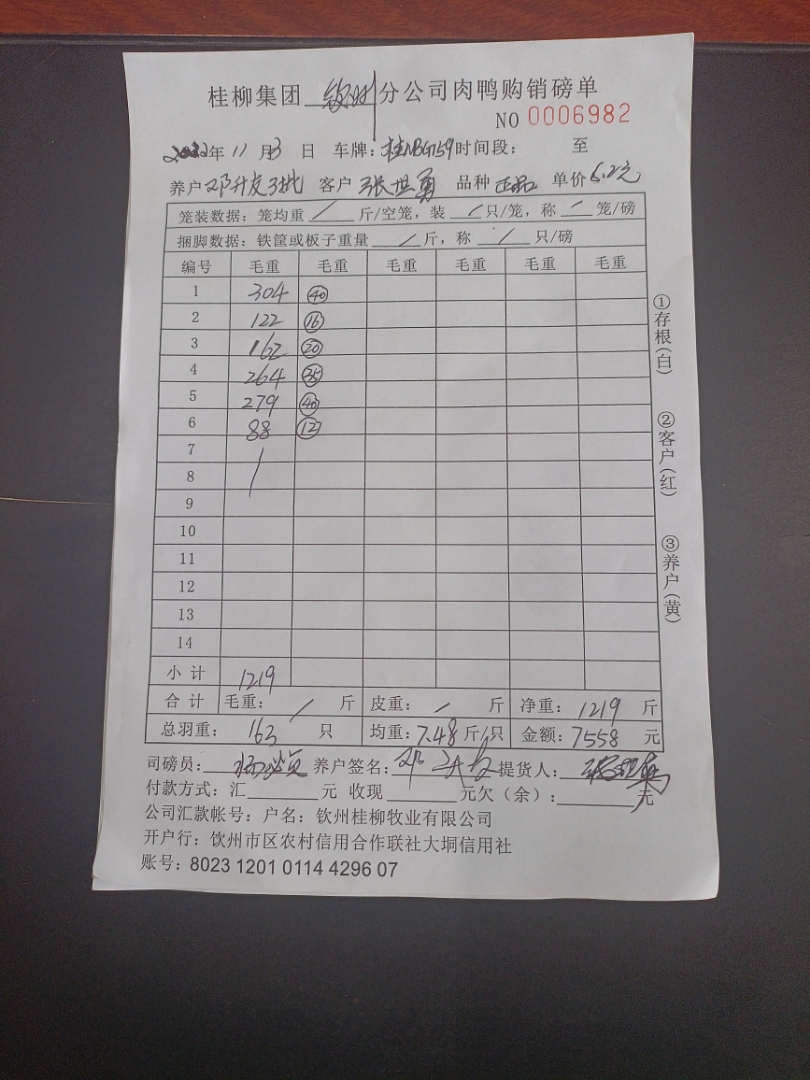 桂柳集团 钦州 分公司肉鸭购销磅单
NO 0006982
2022年 11 月 3 日 车牌: 桂NBG159 时间段: 至
养户 邓升友3批 客户 张世勇 品种 正品 单价 6.2元
笼装数据: 笼均重 / 斤/空笼, 装 / 只/笼, 称 / 笼/磅
捆脚数据: 铁筐或板子重量 / 斤, 称 / 只/磅
编号 毛重 毛重 毛重 毛重 毛重 毛重
1 304 40
2 122 16
3 162 20
4 264 35
5 279 40
6 88 12
7
8
9
10
11
12
13
14
小计 1219
合计 毛重: / 斤 皮重: / 斤 净重: 1219 斤
总羽重: 163 只 均重: 7.48 斤/只 金额: 7558 元
司磅员: 养户签名: 邓升友 提货人:
付款方式: 汇 元 收现 元欠(余): 元
公司汇款帐号: 户名: 钦州桂柳牧业有限公司
开户行: 钦州市区农村信用合作联社大垌信用社
账号: 8023 1201 0114 4296 07
①存根(白)
②客户(红)
③养户(黄)